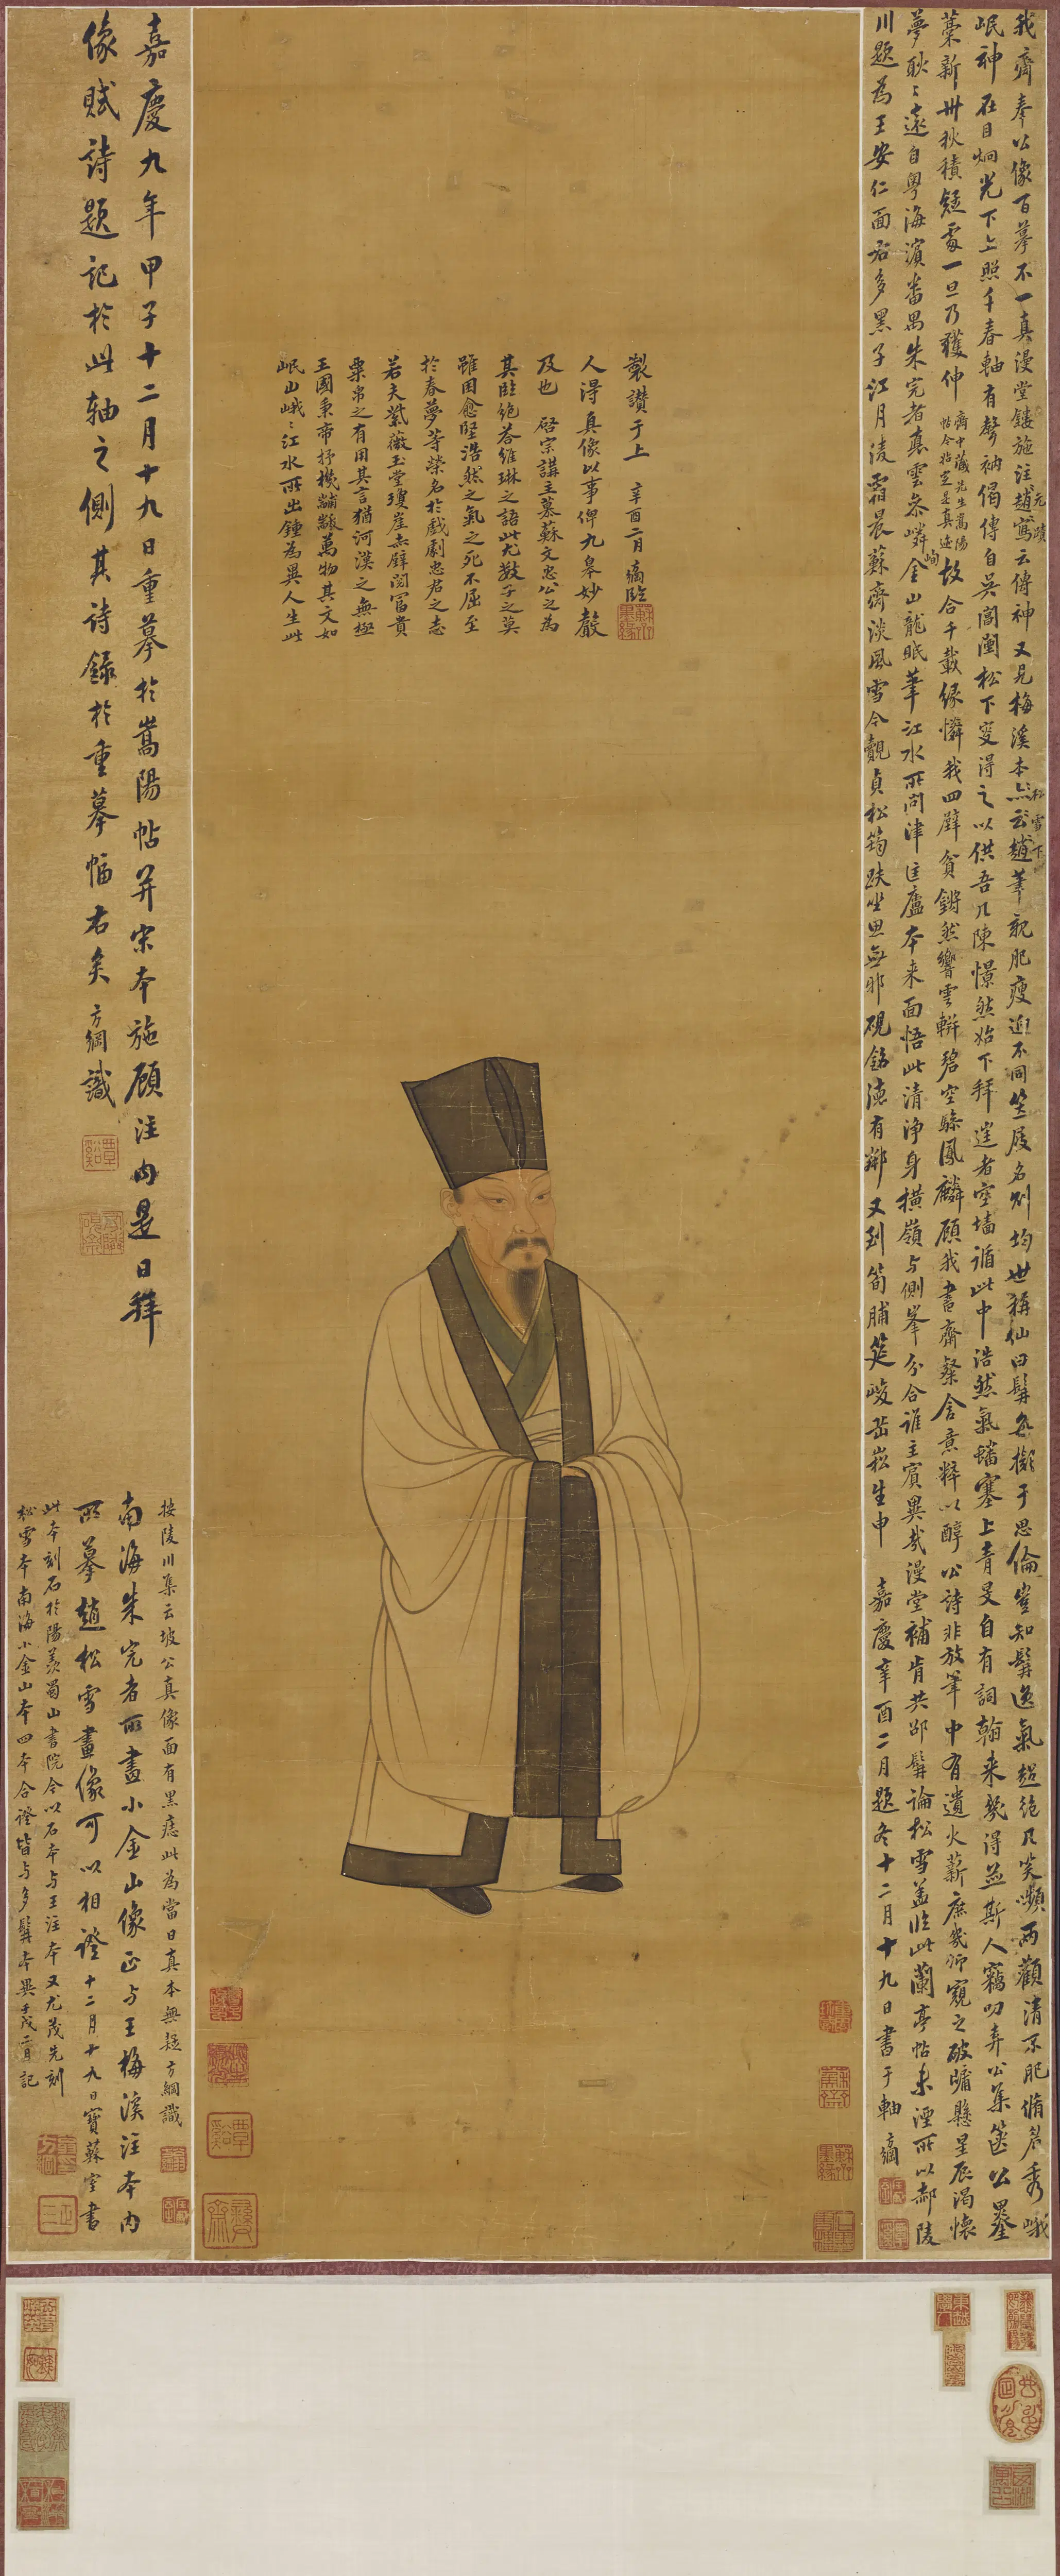 我齋奉公像百摹不一真漫堂鏤施注趙寫云傳神又見梅溪本亦云趙筆親肥瘦迥不同笠屐名別均世稱仙曰髯多擬于思倫豈知髯逸氣超絕凡笑嚬兩顴清不肥脩眉秀峨
元蹟
松雪下
岷神在目炯光下上照千春軸有聲衲偈傳自吳閶闉松下叟得之以供吾几陳憬然始下拜者空墻循此中浩然氣蟠塞上青旻自有詞翰来幾得並斯人竊叨弆公集篋公墨
藁新卅秋積疑霧一旦乃獲伸
齋中藏先生嵩陽
帖今始定是真迹
故合千載緣憐我四壁貧鏘然響雲輧碧空驂鳳麟顧我書齋粲含意粹以醇公詩非放筆中有遺火薪庶幾師窺之破牖懸星辰渴懷
夢耿々遠自粤海濱番禺朱完者雲嶙峋金山龍眠筆江水所問津匡廬本来面悟此清淨身橫嶺与側峯分合誰主賓異哉漫堂補肯共邵髯論松雪蓋臨此蘭亭帖未湮所以郝陵
川題為王安仁面右多黑子江月淩霜晨蘇齋淡風雪今覿貞松筠趺坐思無邪硯銘德有鄰又到筍脯筵峻嶽崧生申 嘉慶辛酉二月題冬十二月十九日書于軸 方綱
岷山峨々江水所出鍾為異人生此
王國秉帝杼機黼黻萬物其文如
粟帛之有用其言猶河漢之無極
若夫紫薇玉堂瓊崖赤壁閱冨貴
於春夢等榮名於戲劇忠君之志
雖困愈堅浩然之氣之死不屈至
其臨絕荅維琳之語此尤數子之莫
及也 啓宗講主慕蘇文忠公之為
人得真像以事俾九皋妙聲
製讃于上 辛酉二月 方綱臨
嘉慶九年甲子十二月十九日重摹於嵩陽帖并宋本施顧注內是日拜
像賦詩題記於此軸之側其詩錄於重摹幅右矣 方綱識
覃谿
按陵川集云坡公真像面有黑痣此為當日真本無疑方綱識
南海朱完者所畫小金山像正与王梅溪注本內
所摹趙松雪畫像可以相證十二月十九日寶蘇室書
此本刻石於陽羨蜀山書院今以石本与王注本又尤茂先刻
松雪本南海小金山本四本合證皆与多髯本異壬戌二月記
覃谿